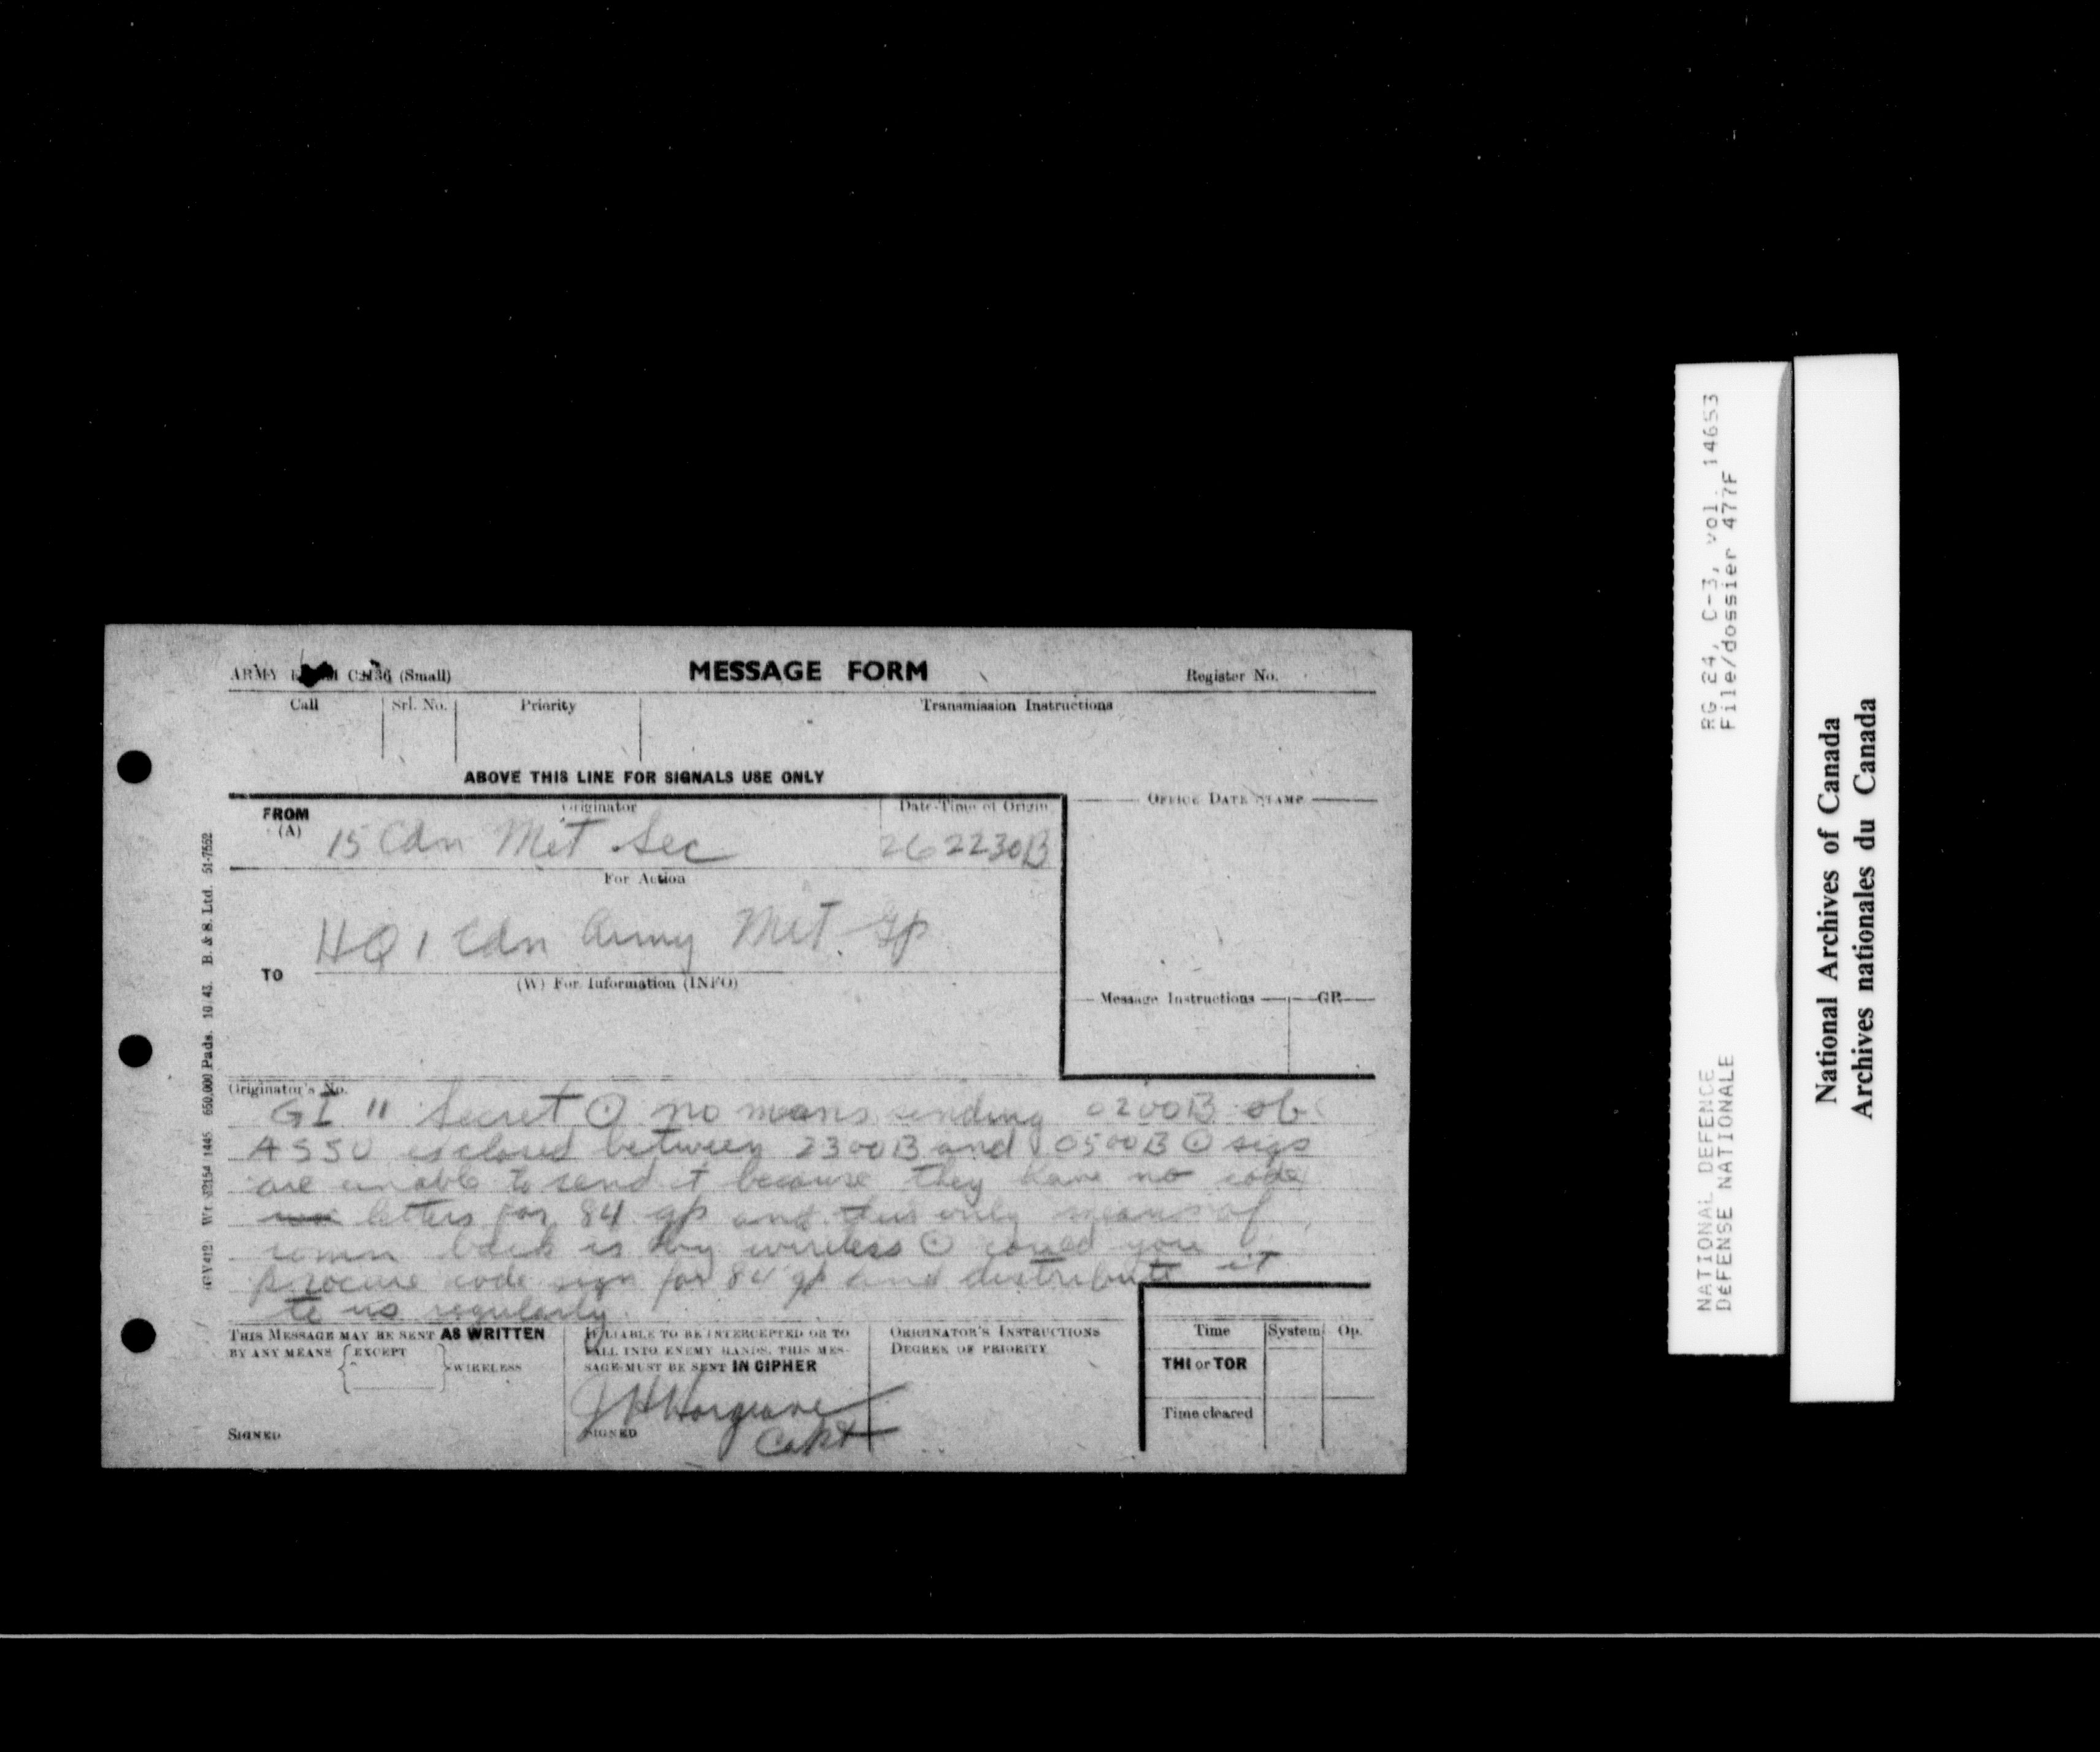 ARMY FORM C2136 (Small)
MESSAGE FORM
Register No.
Call
Srl. No.
Priority
Transmission Instructions
ABOVE THIS LINE FOR SIGNALS USE ONLY
FROM
(A)
Originator
Date-Time of Origin
OFFICE DATE STAMP
15 Cdn Met Sec
262230B
For Action
HQ 1 Cdn Army Met. Gp
TO
(W) For Information (INFO)
Message Instructions
GR
Originator's No.
GI " Secret ⊙ no means sending 0200B ob
ASSU is closed between 2300B and 0500B ⊙ sigs
are unable to send it because they have no code
letters for 84 gp and this only means of
comn back is by wireless ⊙ could you
procure code sign for 84 gp and distribute it
to us regularly.
THIS MESSAGE MAY BE SENT AS WRITTEN
BY ANY MEANS
EXCEPT
WIRELESS
SIGNED
IF LIABLE TO BE INTERCEPTED OR TO
FALL INTO ENEMY HANDS, THIS MES-
SAGE MUST BE SENT IN CIPHER
J H Hargrave
SIGNED
Capt
ORIGINATOR'S INSTRUCTIONS
DEGREE OF PRIORITY
Time
System
Op.
THI or TOR
Time cleared
(GV412) Wt 32154/1445 650,000 Pads. 10/43. B. & S. Ltd. 51-7552
RG 24, C-3, vol. 14653
File/dossier 477F
NATIONAL DEFENCE
DÉFENSE NATIONALE
National Archives of Canada
Archives nationales du Canada